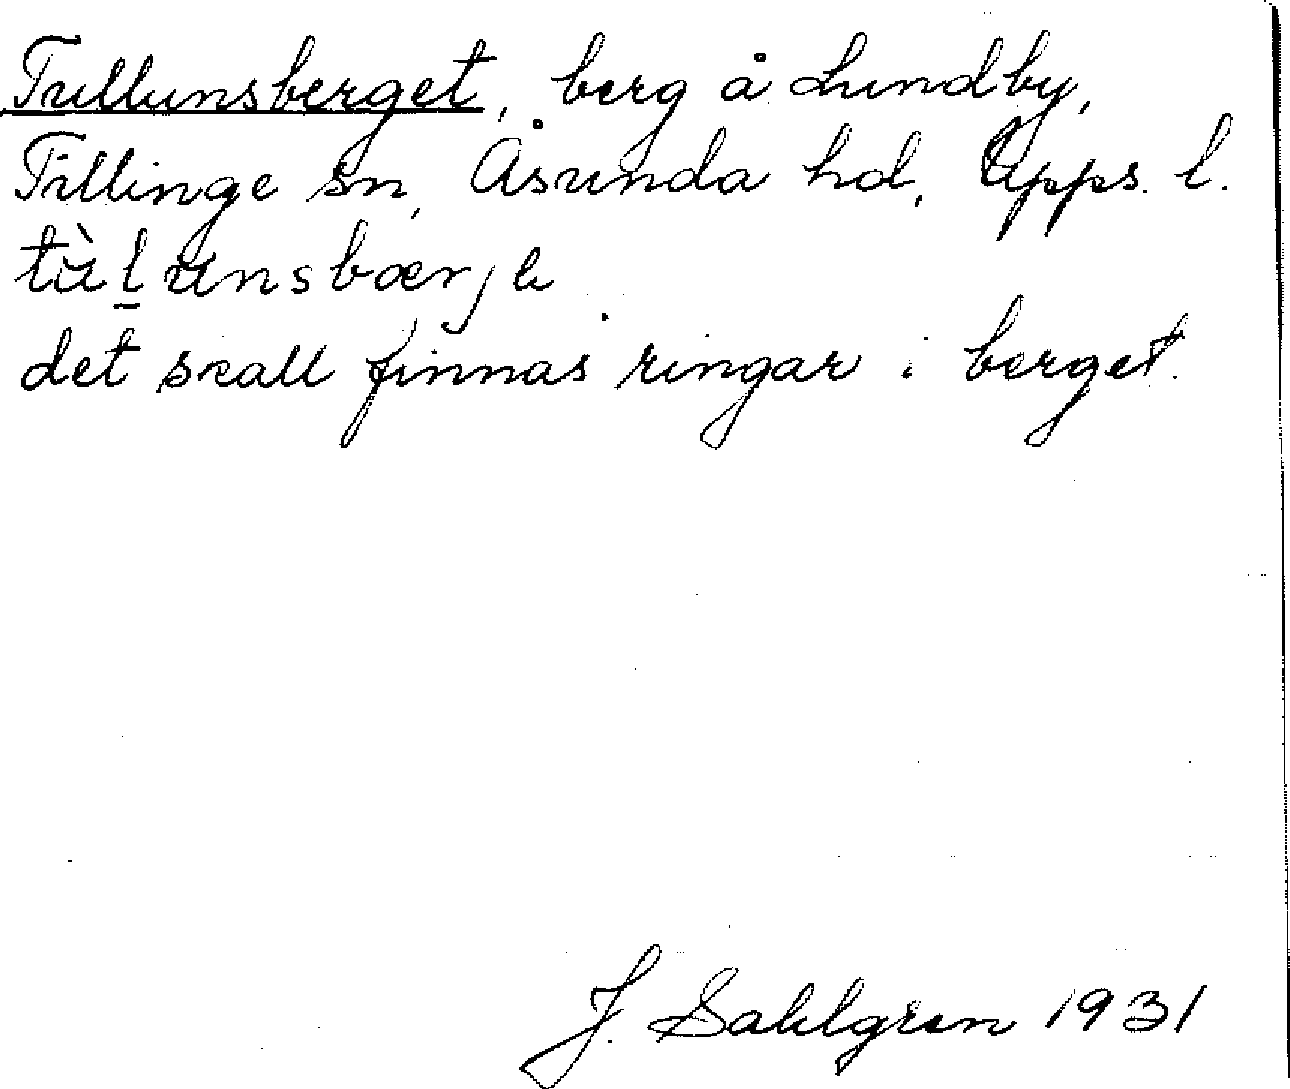 Tullunsberget, berg å Lundby,
Tillinge sn, Åsunda hd, Upps. l.
tùl̲unsbærjə
det skall finnas ringar i berget.
J. Sahlgren 1931